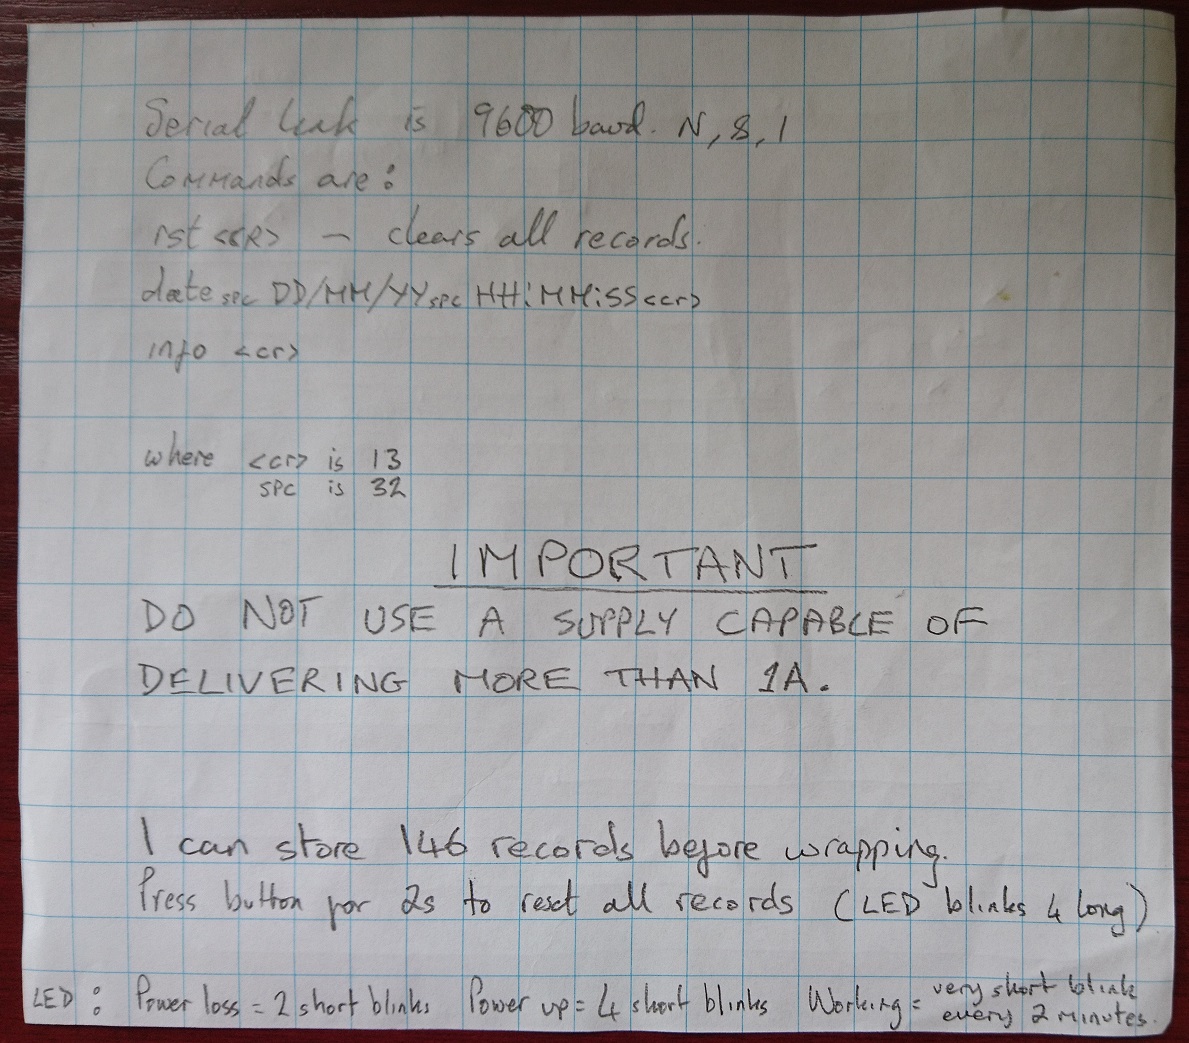 Serial Leak is 9600 baud. N, 8, 1
Commands are:
rst <cR> - clears all records.
date spc DD/MM/YY spc HH:MM:SS <cr>
info <cr>
where <cr> is 13
spc is 32
IMPORTANT
DO NOT USE A SUPPLY CAPABLE OF
DELIVERING MORE THAN 1A.
I can store 146 records before wrapping.
Press button for 2s to reset all records (LED blinks 4 long)
LED: Power loss = 2 short blinks Power up = 4 short blinks Working = very short blink
every 2 minutes.